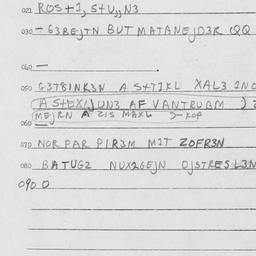 021 ROS+1, S+UjjN3
030 - G3BEjTN BUT MATANEjD3R (QQ
040 —
050 G3T8INK3N A S+TIKL XAL3 INC
A S+EX(JUN3 AF VANTRUGM
060 MEjRN A ZIS MAXL 2-KOP
070 NOR PAR PIR3M MIT ZOFR3N
080 BATUGZ NUXLGEJN OjSTRES+3N
090 0